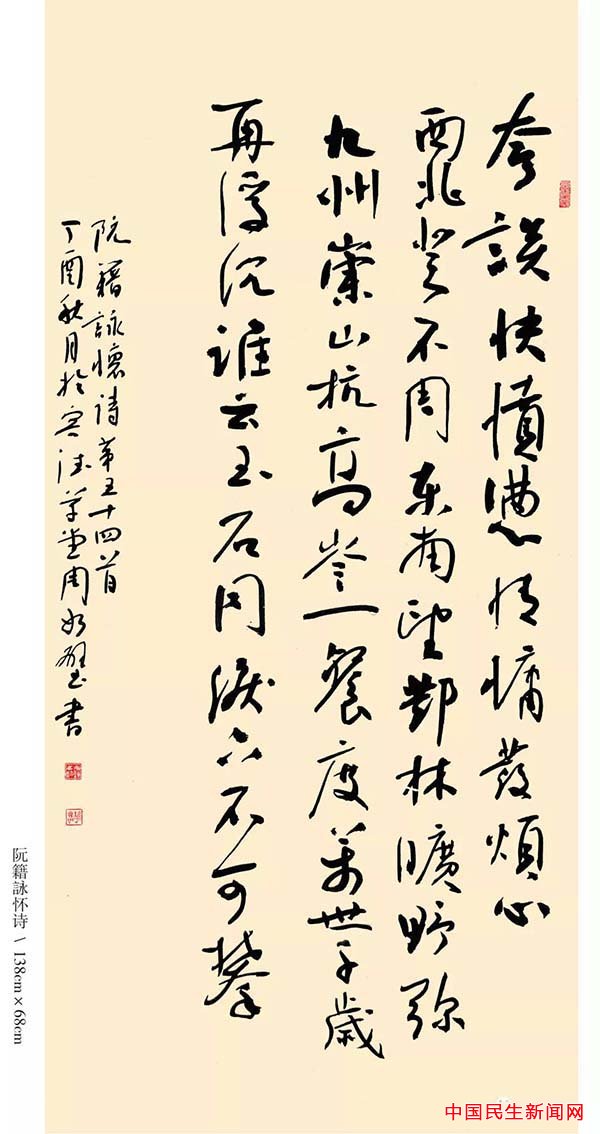 夸談快憤懣情慵發煩心
西北登不周東南望鄧林曠野弥
九州崇山抗高岑一餐度萬世千歲
再浮沉誰云玉石同淚下不可禁
阮籍詠懷詩第五十四首
丁酉秋月於草堂周如璧書
阮籍詠怀诗 \ 138cm×68cm
中国民生新闻网